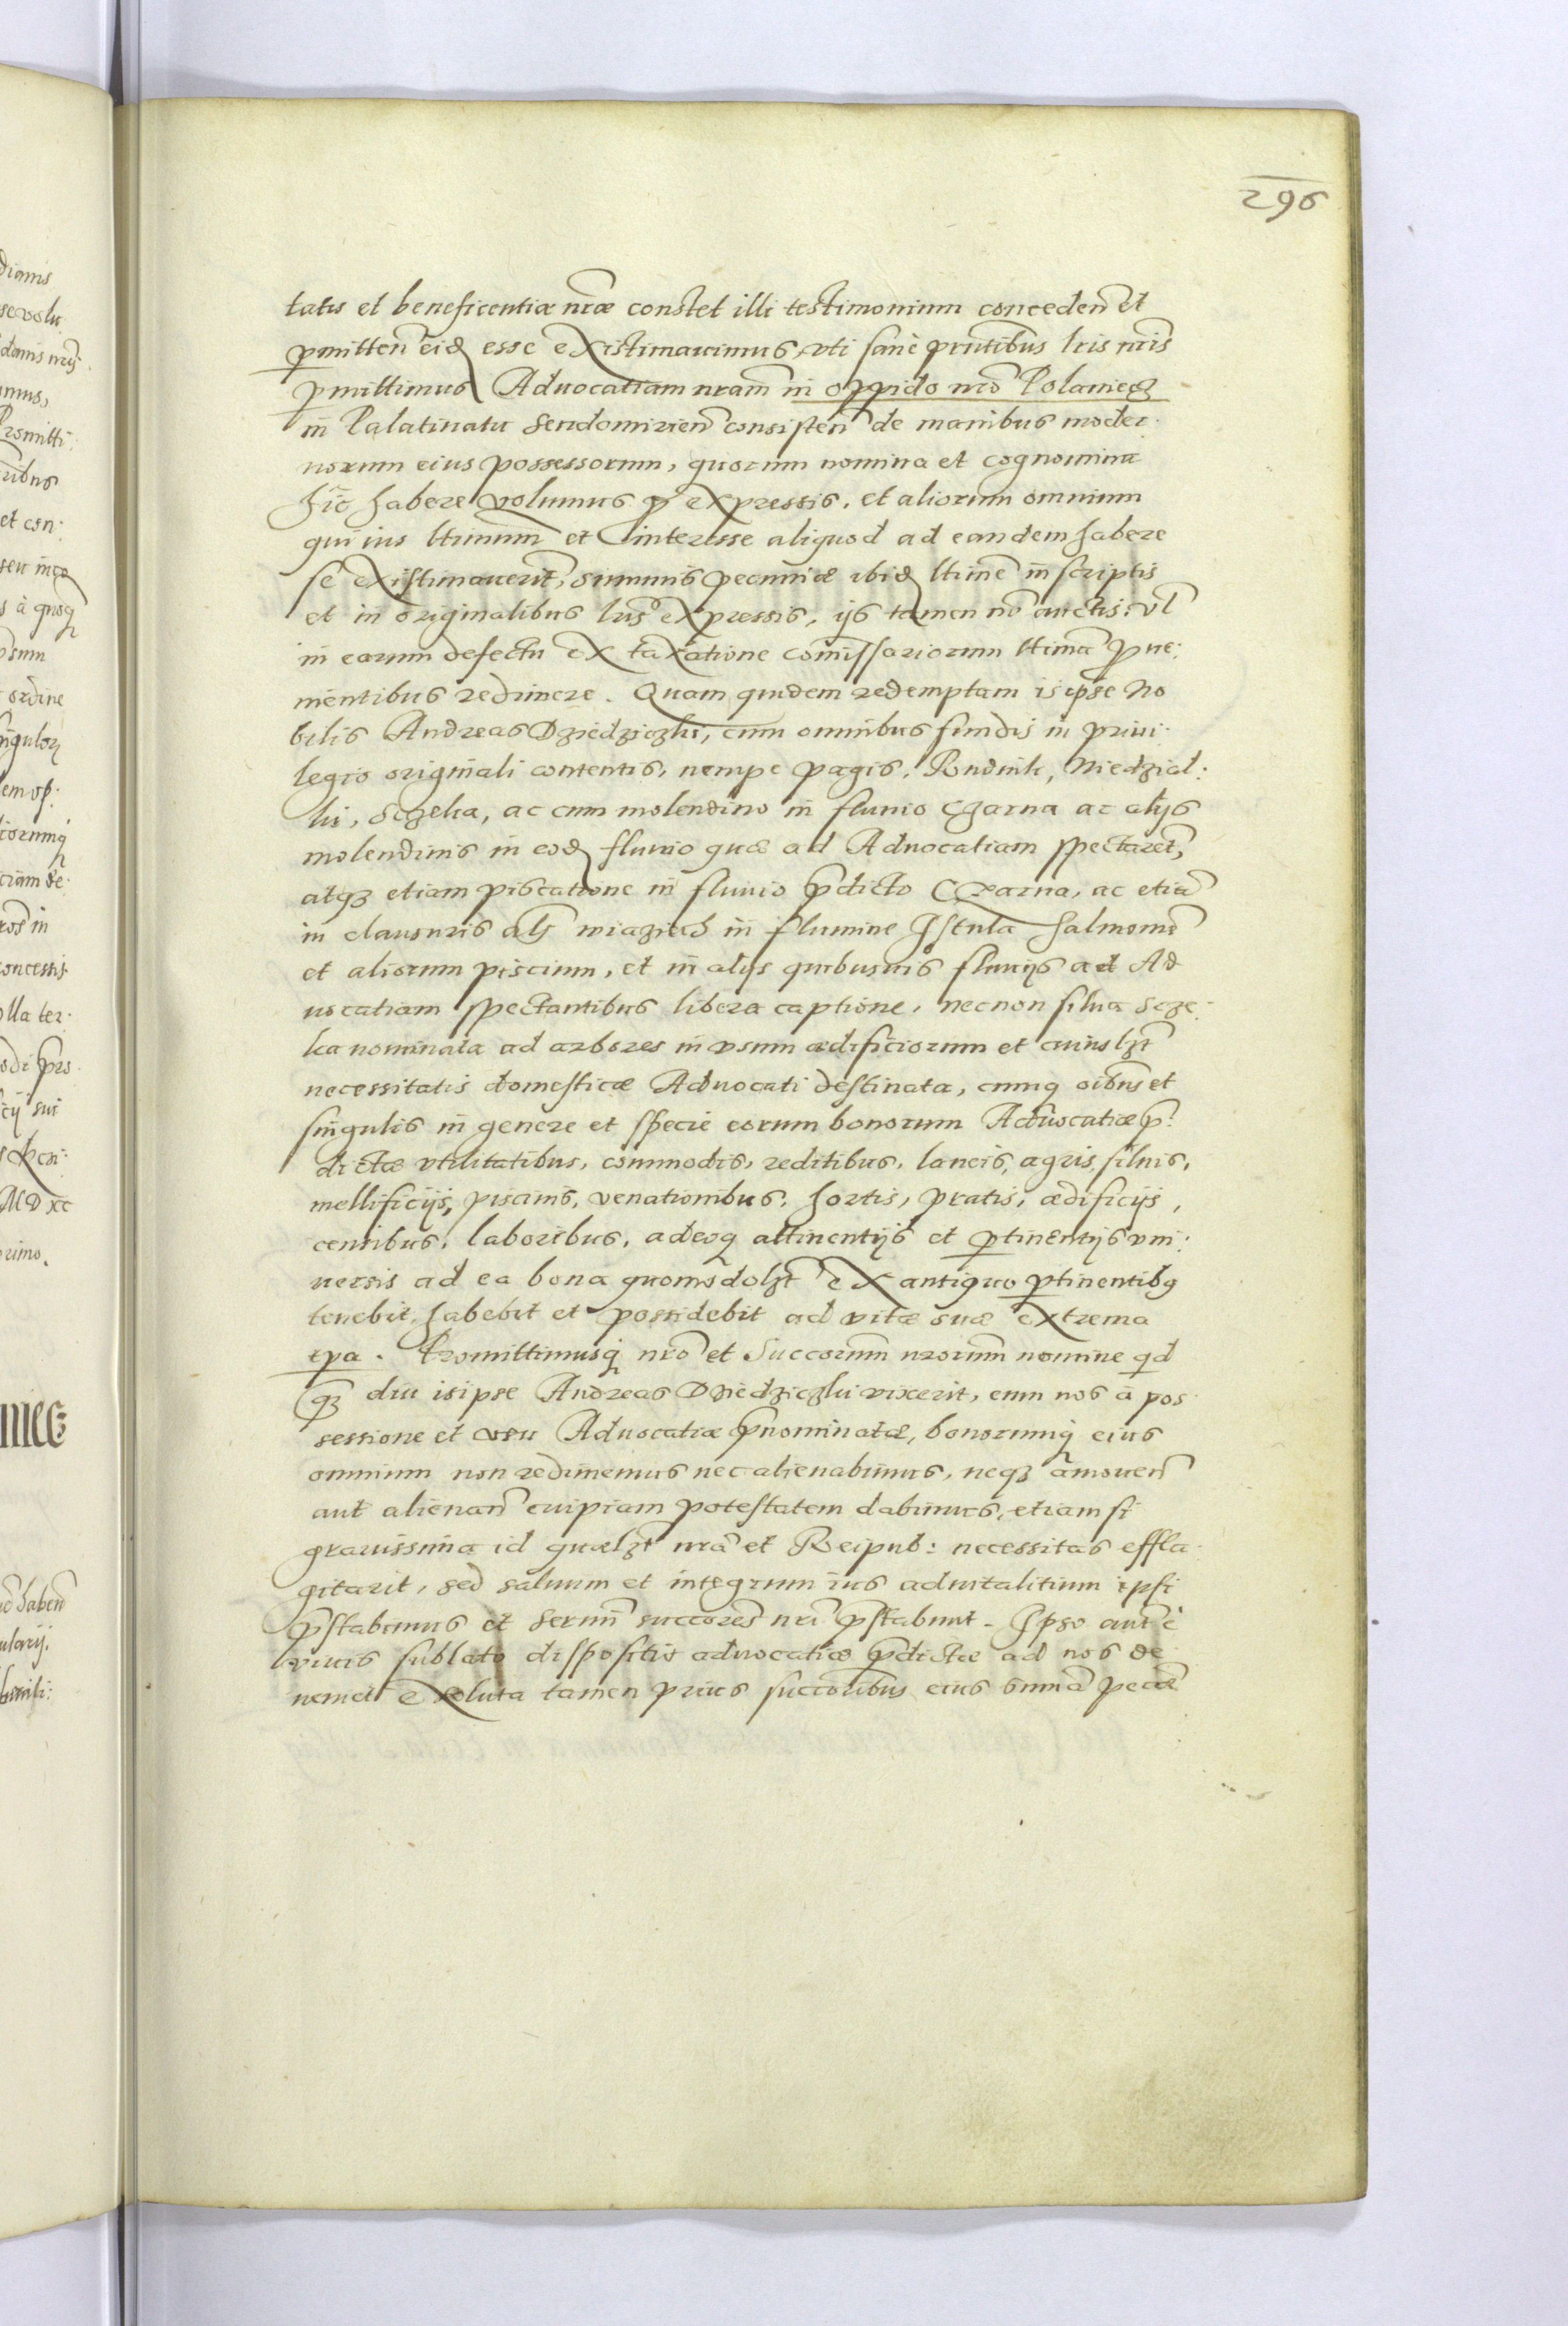 296
tatis et beneficentiæ nr̃æ constet illi testimonium conceden̄ et
p̱mitten̄ eid̨ esse existimauimus, vti sane pn̄tibus lr̃is nr̃is
p̱mittimus Aduocatiam nram̄ in oppido nr̃o Polaniecz
in Palatinatu Sendomirien̄ consisten̄ de manibus moder-
norum eius possessorum, quorum nomina et cognomina
hic̄ habere volumus p̱ expressis, et aliorum omnium
qui ius ltimum̄ et interesse aliquod ad eandem habere
se existimauerit̄, summis pecuniæ ibid̨ ltime̅ in scriptis
et in originalibus lris̄ expressis, ijs tamen no̅ auctis, vl̄
in earum defectu ex taxatione com̄issariorum ltima̅ p̱ue:
nientibus redimere. Quam quidem redemptam is ip̄se No
bilis Andreas Dziedziczki, cum omnibus fundis in priui-
legio originali contentis, nempe pagis, Rudnik, Niedzial:
ki, Sczeka, ac cum molendino in fluuio Czarna ac alijs
molendinis in eod̨ fluuio quæ ad Aduocatiam spectaret̄,
atqz etiam piscatione in fluuio p̄dicto Czarna, ac etia̅
in clausuris als̄ wiaziech in flumine Istula Salmonu̅
et aliorum piscium, et in alijs quibusuis fluuijs ad Ad
uocatiam spectantibus libera captione, necnon silua Scze-
ka nominata ad arbores in vsum ædificiorum et cuiuslzt̄
necessitatis domesticæ Aduocati destinata, cumq̨ oib̄us et
singulis in genere et specie eorum bonorum Aduocatiæ p̄:
dictæ vtilitatibus, commodis, reditibus, laneis, agris, siluis,
mellificijs, piscinis, venationibus, hortis, pratis, ædificijs,
censibus, laboribus, adeoq̨ attinentijs et p̱tinentijs vni:
uersis ad ea bona quomodolzt̄ ex antiquo p̱tinentibq̨
tenebit, habebit et possidebit ad vitæ suæ extrema
tpa. Promittimusq̨ nr̃o et Succorum̄ nrorum̄ nomine qd
qz̄ diu is ipse Andreas Dziedziczki vixerit, eum nos à pos
sessione et vsu Aduocatiæ p̄nominatæ, bonorumq̨ eius
omnium non redimemus nec alienabimus, neqz amouen̄
aut alienan̄ cuipiam potestatem dabimus, etiam si
grauissima id quælzt̄ nra̅ et Reipub: necessitas effla-
gitarit, sed saluum et integrum ius aduitalitium ipsi
p̄stabimus et Serm̄i succores̄ nr̃i p̄stabunt. Ipso aut̄ è
viuis sublato dispositis aduocatiæ p̄dictæ ad nos de
ueniet exoluta tamen prius succoribus eius sum̄a pecǣ